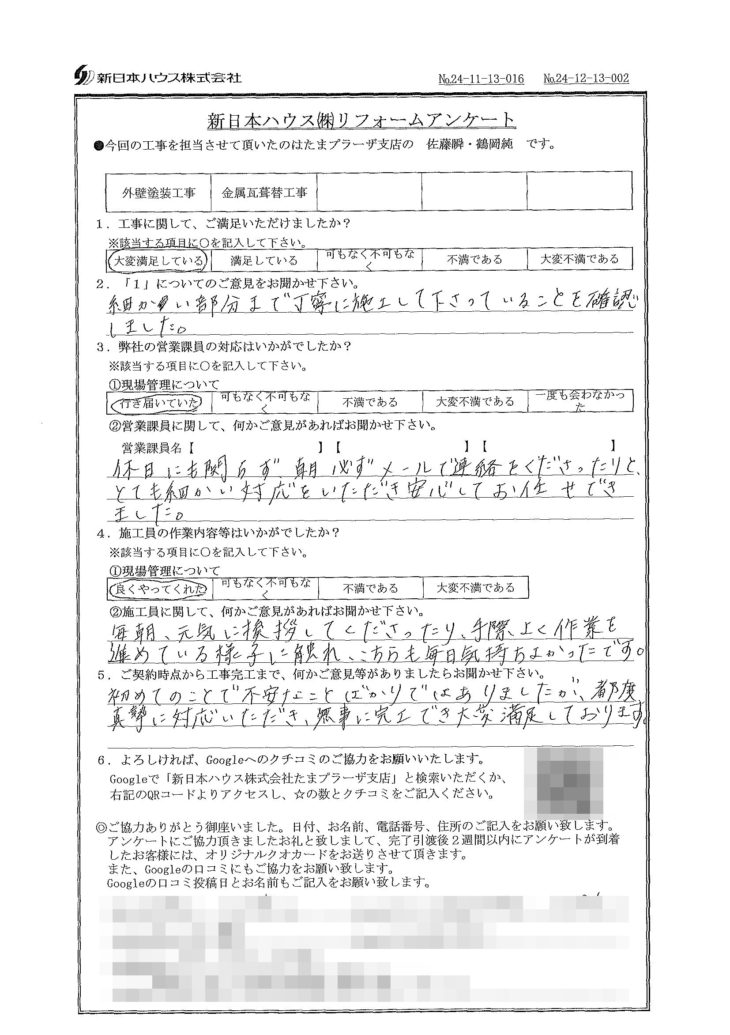 新日本ハウス株式会社 №24-11-13-016 №24-12-13-002
新日本ハウス㈱リフォームアンケート
●今回の工事を担当させて頂いたのはたまプラーザ支店の 佐藤瞬・鶴岡純 です。
外壁塗装工事 金属瓦葺替工事
1．工事に関して、ご満足いただけましたか？
※該当する項目に○を記入して下さい。
大変満足している 満足している 可もなく不可もなく 不満である 大変不満である
2．「1」についてのご意見をお聞かせ下さい。
細かい部分まで丁寧に施工して下さっていることを確認
しました。
3．弊社の営業課員の対応はいかがでしたか？
※該当する項目に○を記入して下さい。
①現場管理について
行き届いていた 可もなく不可もなく 不満である 大変不満である 一度も会わなかった
②営業課員に関して、何かご意見があればお聞かせ下さい。
営業課員名【 】【 】【 】
休日にも関らず、朝必ずメールで連絡をくださったりと、
とても細かい対応をいただき安心してお任せでき
ました。
4．施工員の作業内容等はいかがでしたか？
※該当する項目に○を記入して下さい。
①現場管理について
良くやってくれた 可もなく不可もなく 不満である 大変不満である
②施工員に関して、何かご意見があればお聞かせ下さい。
毎朝、元気に挨拶してくださったり、手際よく作業を
進めている様子に触れ、こちらも毎日気持ちよかったです。
5．ご契約時点から工事完工まで、何かご意見等がありましたらお聞かせ下さい。
初めてのことで不安なことばかりではありましたが、都度
真摯に対応いただき、無事に完工でき大変満足しております。
6．よろしければ、Googleへのクチコミのご協力をお願いいたします。
Googleで「新日本ハウス株式会社たまプラーザ支店」と検索いただくか、
右記のQRコードよりアクセスし、☆の数とクチコミをご記入ください。
◎ご協力ありがとう御座いました。日付、お名前、電話番号、住所のご記入をお願い致します。
アンケートにご協力頂きましたお礼と致しまして、完了引渡後２週間以内にアンケートが到着
したお客様には、オリジナルクオカードをお送りさせて頂きます。
また、Googleの口コミにもご協力をお願い致します。
Googleの口コミ投稿日とお名前もご記入をお願い致します。